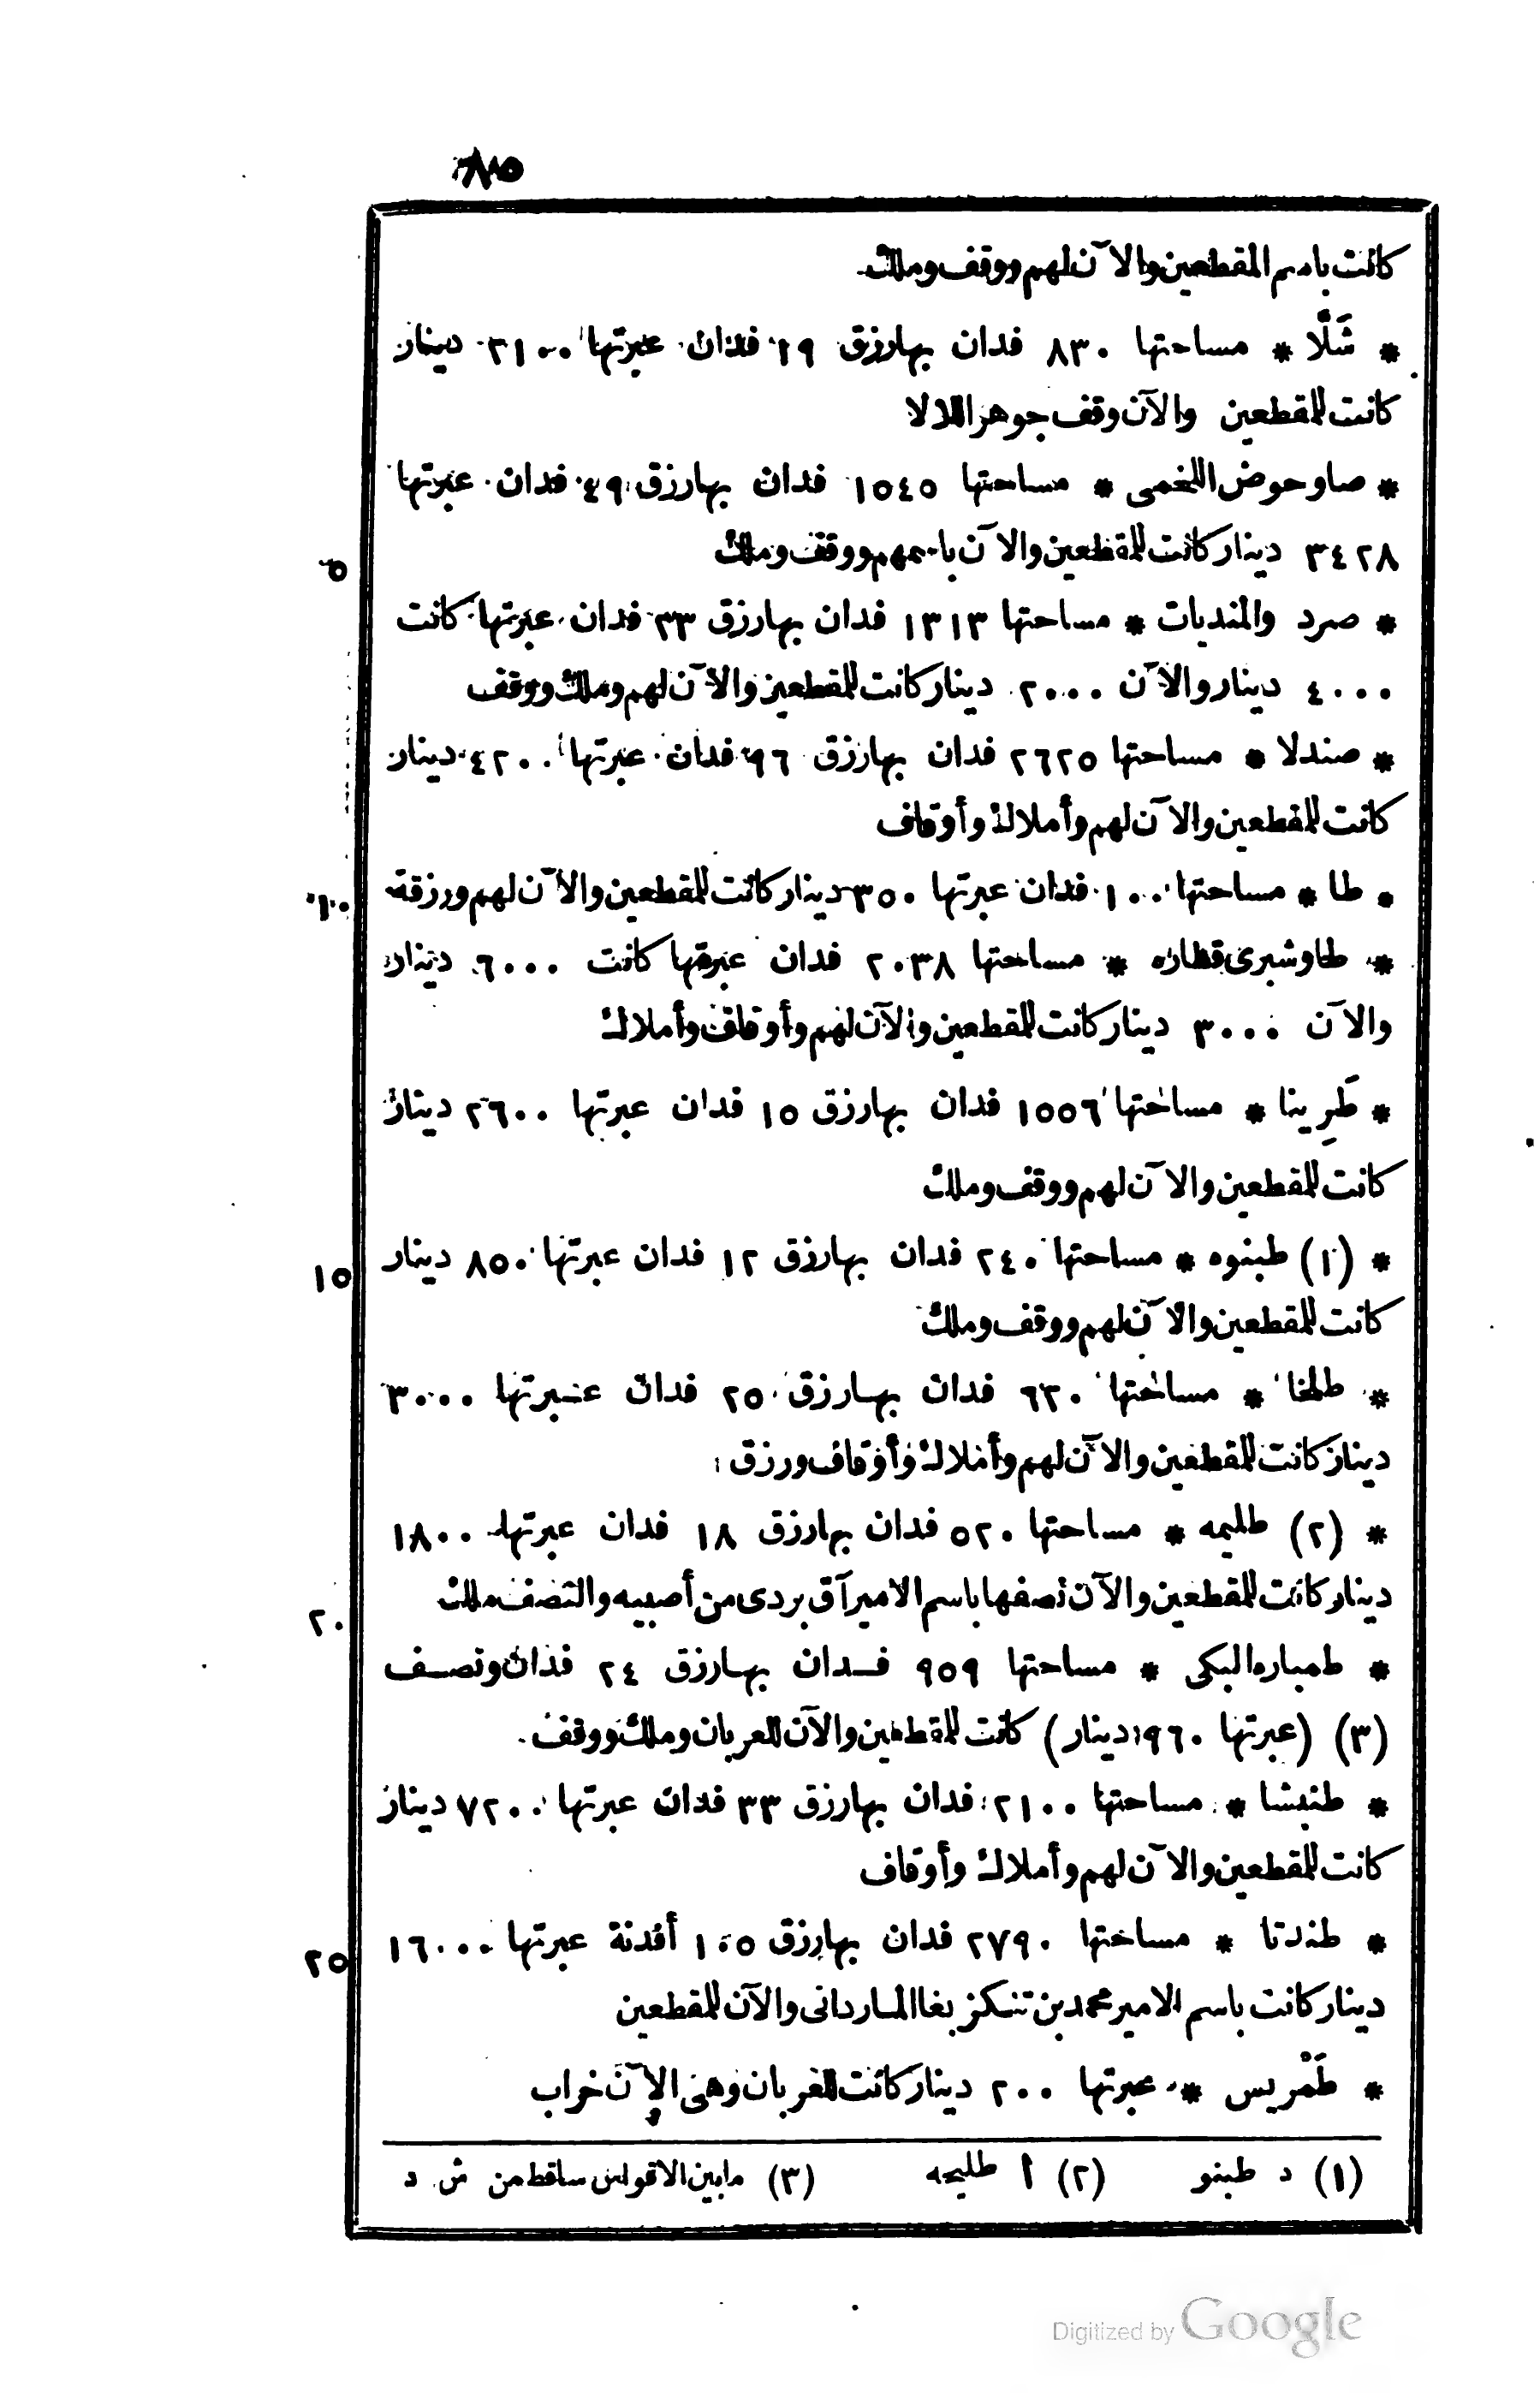 ٨٥
كانت باسم المقطعين والآن لهم ووقف وملك
* شَلَّا * مساحتها ٨٣٠ فدان بها رزق ١٩ فدان عبرتها ٢١٠٠ دينار
كانت للمقطعين والآن وقف جوهر اللالا
* صا وحوض اللخمى * مساحتها ١٥٤٥ فدان بها رزق ٤٩ فدان عبرتها
٣٤٢٨ دينار كانت للمقطعين والآن باسمهم ووقف وملك
٥
* صرد والمنديات * مساحتها ١٣١٣ فدان بها رزق ٣٣ فدان عبرتها كانت
٤٠٠٠ دينار والآن ٢٠٠٠ دينار كانت للمقطعين والآن لهم وملك ووقف
* صندلا * مساحتها ٢٦٢٥ فدان بها رزق ٩٦ فدان عبرتها ٤٢٠٠ دينار
كانت للمقطعين والآن لهم وأملاك وأوقاف
* طا * مساحتها ١٠٠ فدان عبرتها ٣٥٠ دينار كانت للمقطعين والآن لهم ورزقة
١٠
* طا وشبرى قطاره * مساحتها ٢٠٣٨ فدان عبرتها كانت ٦٠٠٠ دينار
والآن ٣٠٠٠ دينار كانت للمقطعين والآن لهم وأوقاف وأملاك
* طَرِينا * مساحتها ١٥٥٦ فدان بها رزق ١٥ فدان عبرتها ٢٦٠٠ دينار
كانت للمقطعين والآن لهم ووقف وملك
* (١) طبنوه * مساحتها ٢٤٠ فدان بها رزق ١٢ فدان عبرتها ٨٥٠ دينار
١٥
كانت للمقطعين والآن لهم ووقف وملك
* طلخا * مساحتها ٦٢٠ فدان بها رزق ٢٥ فدان عبرتها ٣٠٠٠
دينار كانت للمقطعين والآن لهم وأملاك وأوقاف ورزق
* (٢) طليمه * مساحتها ٥٢٠ فدان بها رزق ١٨ فدان عبرتها ١٨٠٠
دينار كانت للمقطعين والآن نصفها باسم الامير آق بردى من أصبيه والنصف ملك
٢٠
* طمباره البكى * مساحتها ٩٥٩ فدان بها رزق ٢٤ فدان ونصف
(٣) (عبرتها ١٩٦٠ دينار) كانت للمقطعين والآن للعربان وملك ووقف
* طنبشا * مساحتها ٢١٠٠ فدان بها رزق ٣٣ فدان عبرتها ٧٢٠٠ دينار
كانت للمقطعين والآن لهم وأملاك وأوقاف
* طندتا * مساحتها ٢٧٩٠ فدان بها رزق ١٠٥ أفدنة عبرتها ١٦٠٠٠
٢٥
دينار كانت باسم الامير محمد بن تنكز بغا الماردانى والآن للمقطعين
* طَمْريس * عبرتها ٢٠٠ دينار كانت للعربان وهى الآن خراب
(١) د طبنو (٢) أ طليحه (٣) مابين الاقواس ساقط من ش د
Digitized by Google